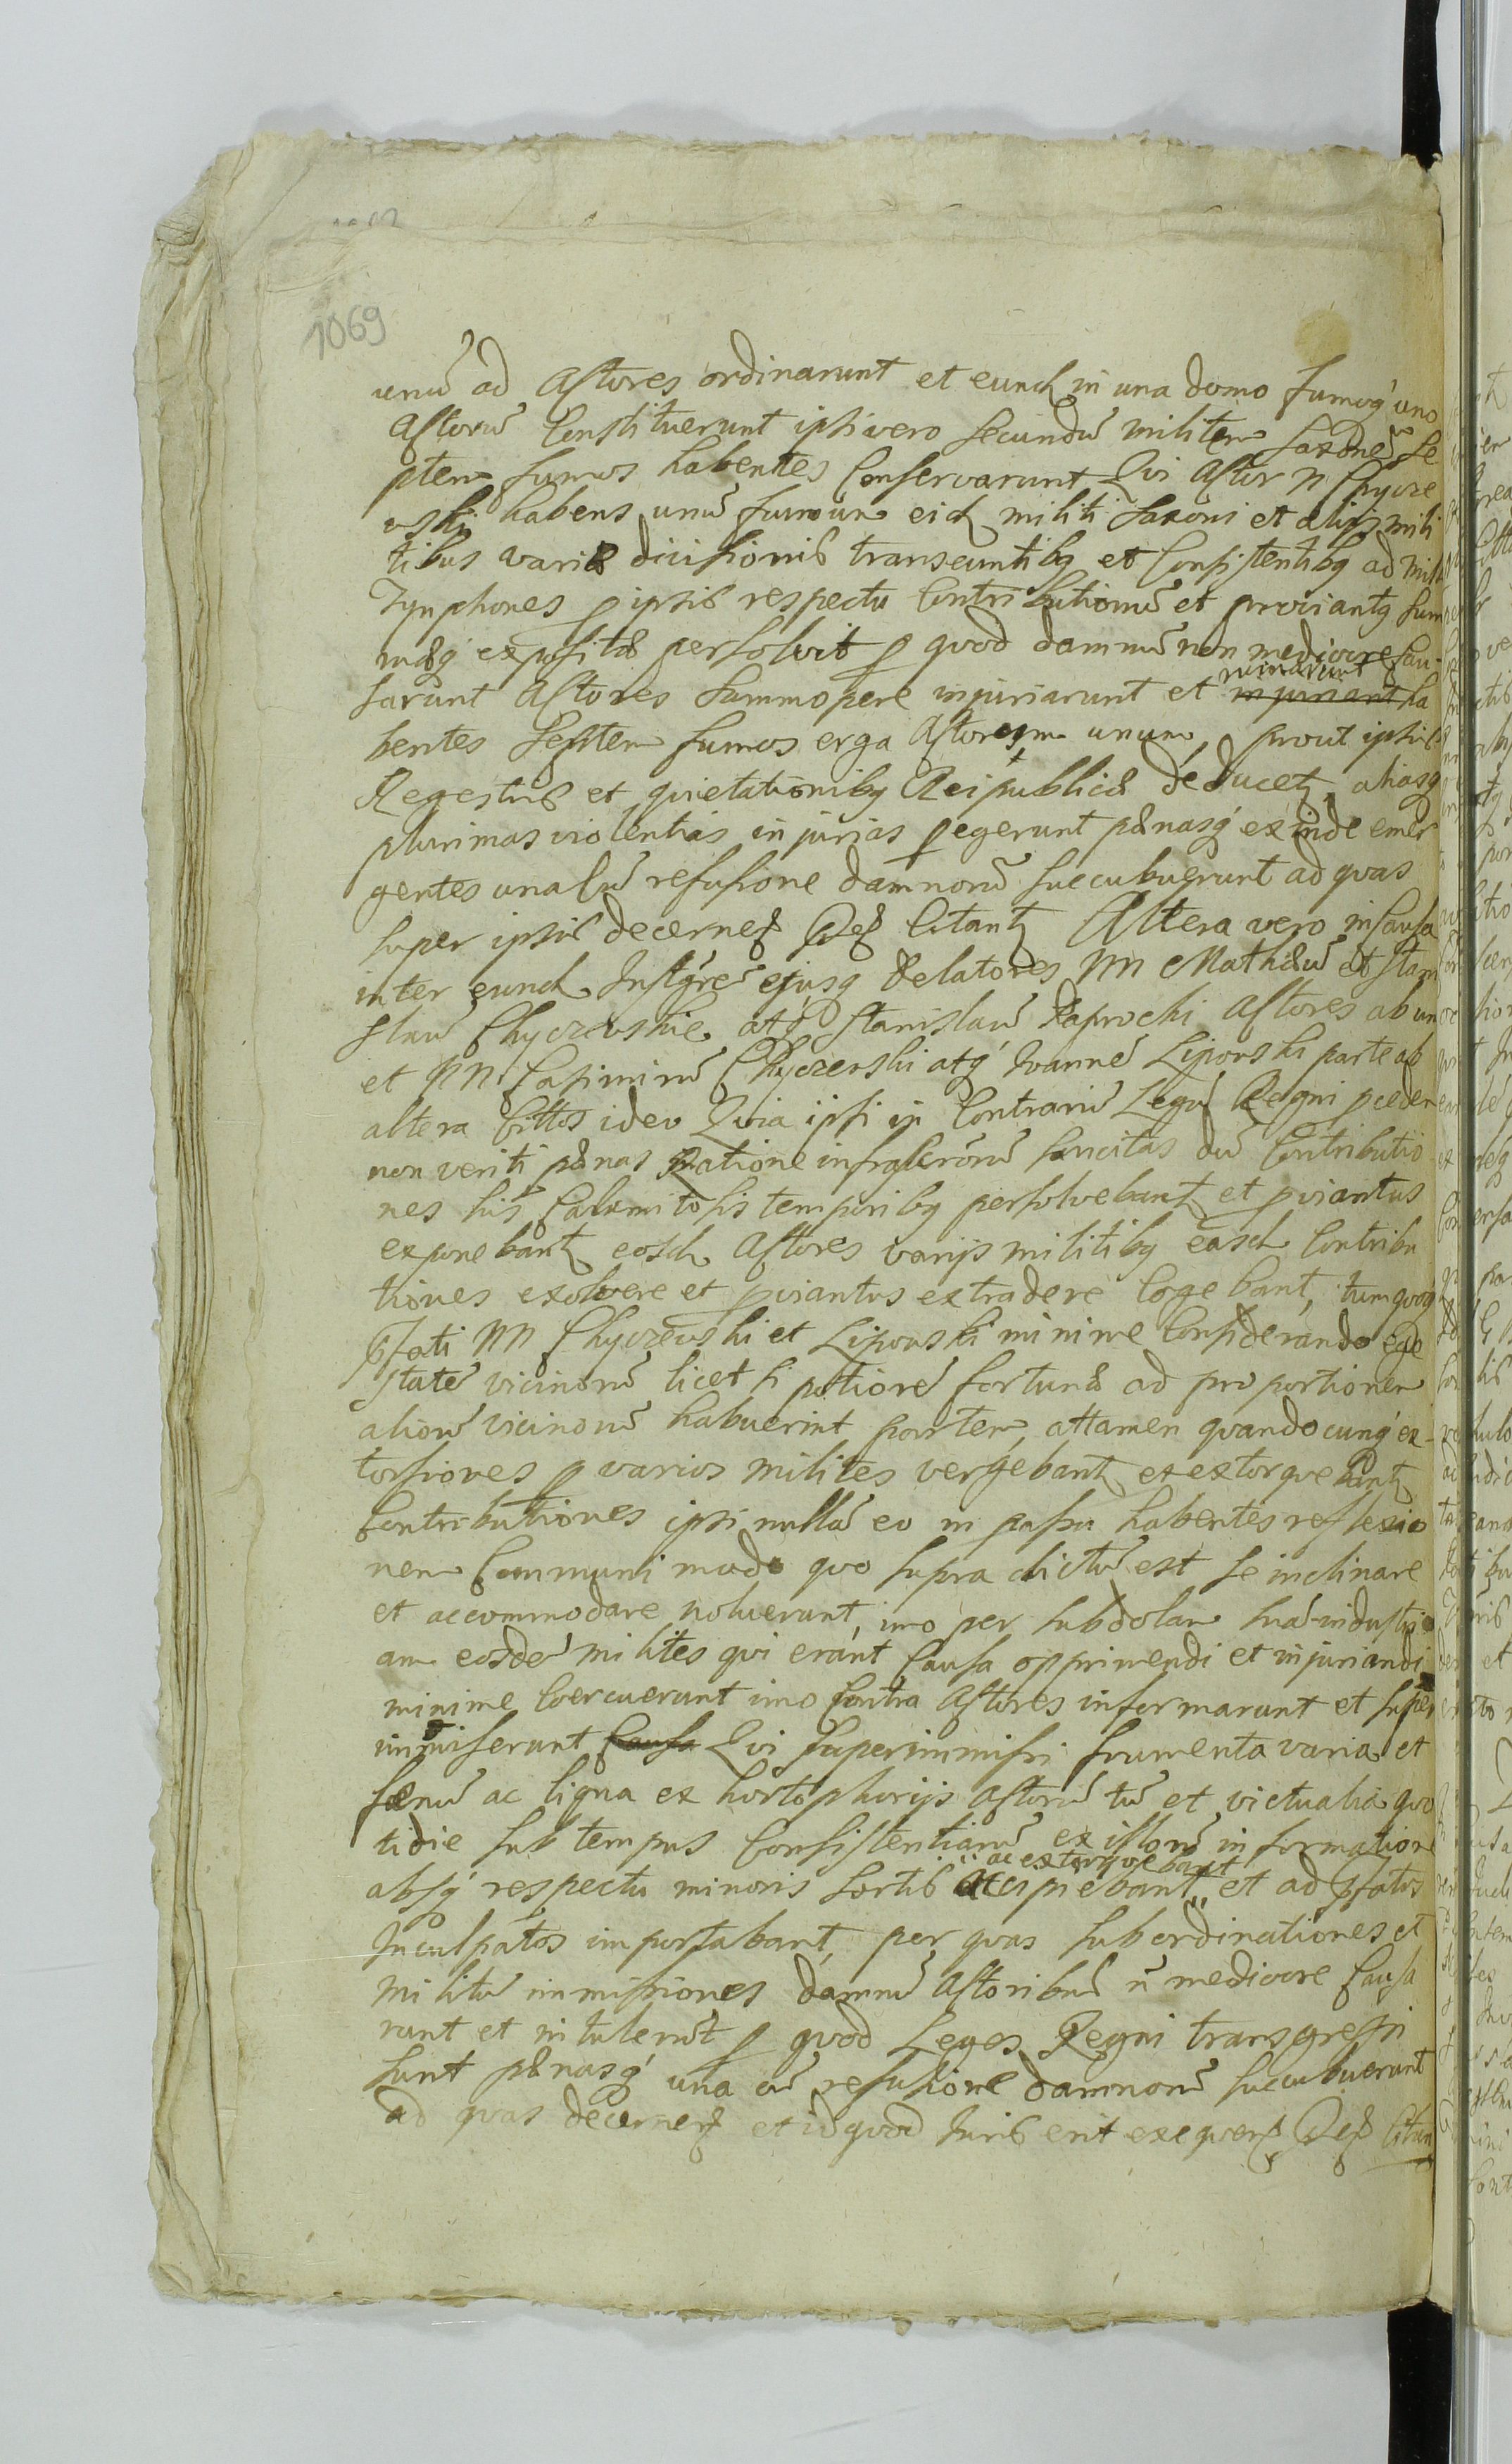 1069
unū ad Actores ordinarunt et eund in una domo fumoq́ uno
Actorū Constituerunt ipsi vero secundū militem saxonē se
ptem fumos habentes Conservarunt Qui Actor N Chycze
wski habens unū fumum eid militi saxoni et alijs mili
tibus variæ divisionis transeuntibq et Consistentibq ad mille
Tynphones p ipsis respectu Contributionū et proviantq sum
mæq́ expositæ persolvit p quod damnū non mediocre Cau-
sarunt Actores summopere injuriarunt et ruinarunt ha
bentes septem fumos erga Actorem unum, prout ipsis
Regestris et quietationibq Reipublicæ deducetq, aliasq
plurimas violentias injurias pegerunt pænasq́ exinde emer
gentes una Cū refusione damnorū succubuerunt ad quas
super ipsis decernen Pen Citantq Altera vero in Causa
inter eund Instgrē ejusq Delatores NN Mathæū et Stani
slaū Chyczewskie atq́ Stanislaū Paprocki Actores ab un
et NN Casimirū Chyczewski atq́ Joannē Lipowski parte ab
altera Cittos ideo Quia ipsi in Contrariū Legū Regni pceden
non veriti pænas Ratione infrascrorū sancitas dū Contributio
nes his Calamitosis temporibq persolvebantq et pviantus
exponebantq eosd Actores varijs militibq easd Contribu
tiones exolvere et pviantus extradere Cogebant, tum quoq́
pfati NN Chyczewski et Lipowski minime Considerando ege
statē vicinorū licet si potiorē fortunæ ad proportionem
aliorū vicinorū habuerint partem, attamen quandocunq́ ex-
torsiones p varios milites vergebantq et extorquebantq
Contributiones ipsi nullā eo in passu habentes reflexio
nem Communi modo quo supra dictū est se inclinare
et accommodare noluerunt, imo per subdolam suā industri
am eosdē milites qui erant Causa opprimendi et injuriandi
minime Coercuerunt imo Contra Actores informarunt et super
immiserunt Causa Qui superimmissi frumenta varia et
fænū ac ligna ex hortophorijs Actorū tū et victualia quo
tidie sub tempus Consistentiarū ex istorū informatione
absq́ respectu minoris sortis accipiebant ac extorquebant et ad pfatos
Inculpatos importabant, per quas subordinationes et
militū immissiones damnū Actoribus n̄ mediocre Causa
runt et intulerūt p quod Leges Regni transgressi
sunt pænasq́ una cū refusione damnorū succubuerunt
ad quas decernen et id quod Juris erit exequen Pen Citan